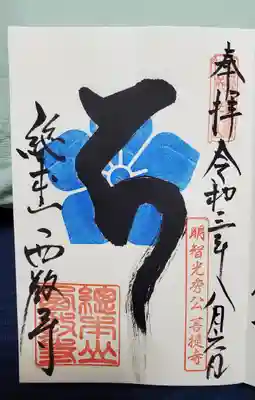 奉拝
令和三年八月
明智光秀公 菩提寺
總本山 西教寺
總本山
西教寺